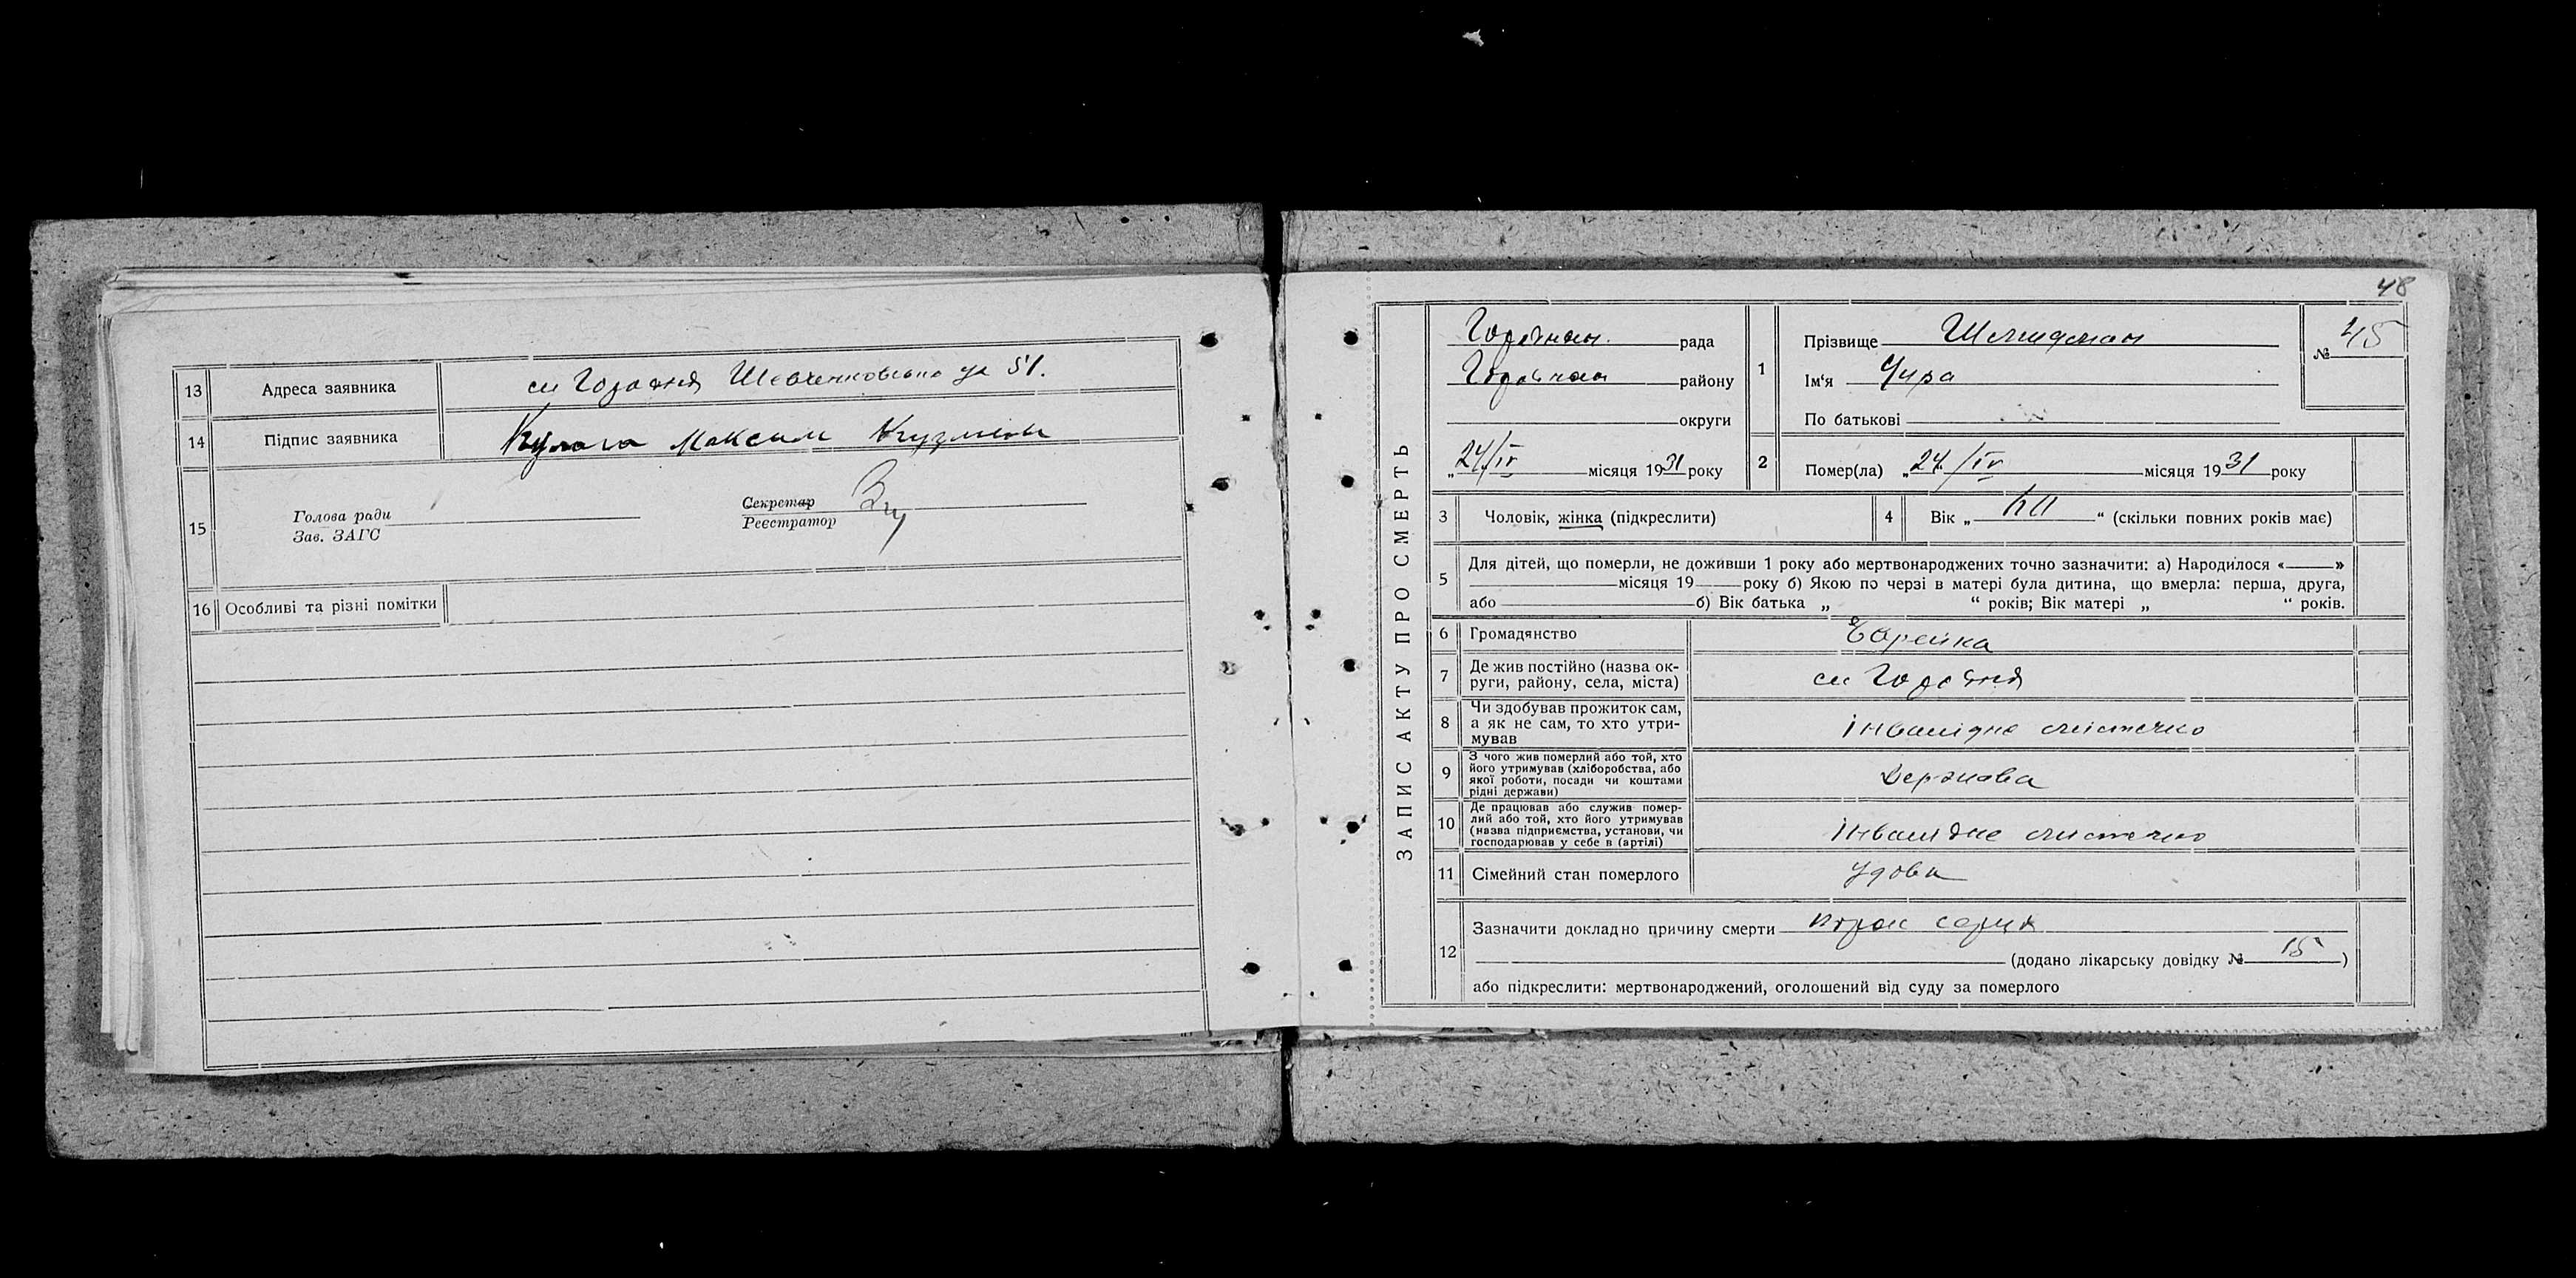 13 Адреса заявника см Городня Шевченковська ул 51.
14 Підпис заявника Максим
15 Голова ради Зав. ЗАГС Секретар Реєстратор
16 Особливі та різні помітки
48
ЗАПИС АКТУ ПРО СМЕРТЬ
Городнян. рада
Городнян району
округи
„24/IV місяця 1931 року
1 Прізвище
Ім'я
По батькові
№ 45
2 Помер(ла) „24/IV місяця 1931 року
3 Чоловік, жінка (підкреслити)
4 Вік „ “ (скільки повних років має)
5 Для дітей, що померли, не доживши 1 року або мертвонароджених точно зазначити: а) Народилося « »
місяця 19 року б) Якою по черзі в матері була дитина, що вмерла: перша, друга,
або б) Вік батька „ “ років; Вік матері „ “ років.
6 Громадянство Єврейка
7 Де жив постійно (назва ок-
руги, району, села, міста) см Городня
8 Чи здобував прожиток сам,
а як не сам, то хто утри-
мував інвалідне містечко
9 З чого жив померлий або той, хто
його утримував (хліборобства, або
якої роботи, посади чи коштами
рідні держави) Держава
10 Де працював або служив помер-
лий або той, хто його утримував
(назва підприємства, установи, чи
господарював у себе в (артілі) інвалідне містечко
11 Сімейний стан померлого удова
12 Зазначити докладно причину смерти порок серця
(додано лікарську довідку № 15 )
або підкреслити: мертвонароджений, оголошений від суду за померлого